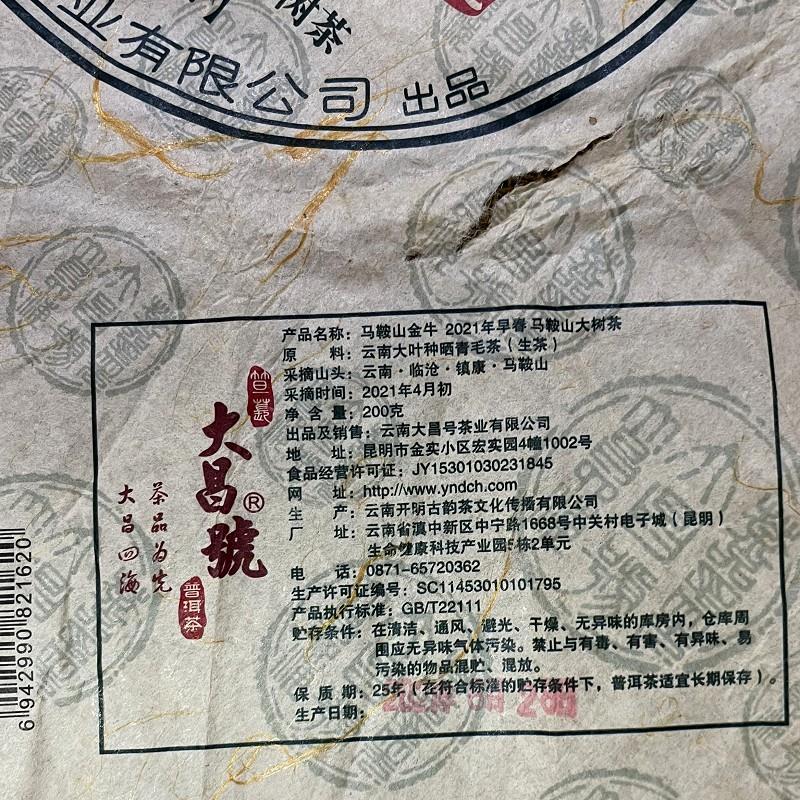 树茶
业有限公司 出品
产品名称：马鞍山金牛 2021年早春 马鞍山大树茶
原 料：云南大叶种晒青毛茶（生茶）
采摘山头：云南·临沧·镇康·马鞍山
采摘时间：2021年4月初
净 含 量：200克
出品及销售：云南大昌号茶业有限公司
地 址：昆明市金实小区宏实园4幢1002号
食品经营许可证：JY15301030231845
网 址：http://www.yndch.com
生 产：云南开明古韵茶文化传播有限公司
厂 址：云南省滇中新区中宁路1668号中关村电子城（昆明）
生命健康科技产业园5栋2单元
电 话：0871-65720362
生产许可证编号：SC11453010101795
产品执行标准：GB/T22111
贮存条件：在清洁、通风、避光、干燥、无异味的库房内，仓库周
围应无异味气体污染。禁止与有毒、有害、有异味、易
污染的物品混贮、混放。
保 质 期：25年（在符合标准的贮存条件下，普洱茶适宜长期保存）。
生产日期：
大昌號®
普洱茶
茶品为先
大昌四海
6 942990 821620